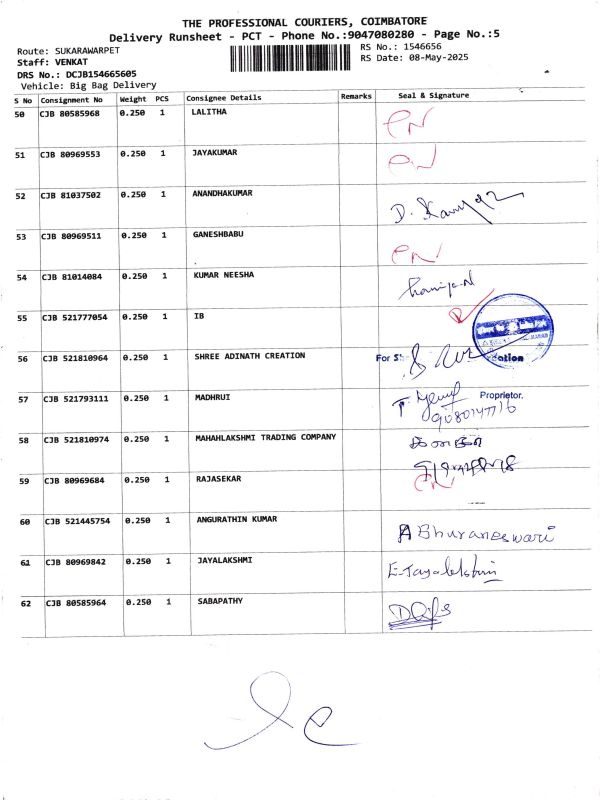 THE PROFESSIONAL COURIERS, COIMBATORE
Delivery Runsheet - PCT - Phone No.:9047080280 - Page No.:5
Route: SUKARAWARPET
RS No.: 1546656
Staff: VENKAT
RS Date: 08-May-2025
DRS No.: DCJB154665605
Vehicle: Big Bag Delivery
S No Consignment No Weight PCS Consignee Details Remarks Seal & Signature
50 CJB 80585968 0.250 1 LALITHA
51 CJB 80969553 0.250 1 JAYAKUMAR
52 CJB 81037502 0.250 1 ANANDHAKUMAR
53 CJB 80969511 0.250 1 GANESHBABU
54 CJB 81014084 0.250 1 KUMAR NEESHA
55 CJB 521777054 0.250 1 IB
56 CJB 521810964 0.250 1 SHREE ADINATH CREATION For
57 CJB 521793111 0.250 1 MADHRUI Proprietor.
58 CJB 521810974 0.250 1 MAHAHLAKSHMI TRADING COMPANY
59 CJB 80969684 0.250 1 RAJASEKAR
60 CJB 521445754 0.250 1 ANGURATHIN KUMAR A Bhuraneswari
61 CJB 80969842 0.250 1 JAYALAKSHMI E-Jayalakshmi
62 CJB 80585964 0.250 1 SABAPATHY